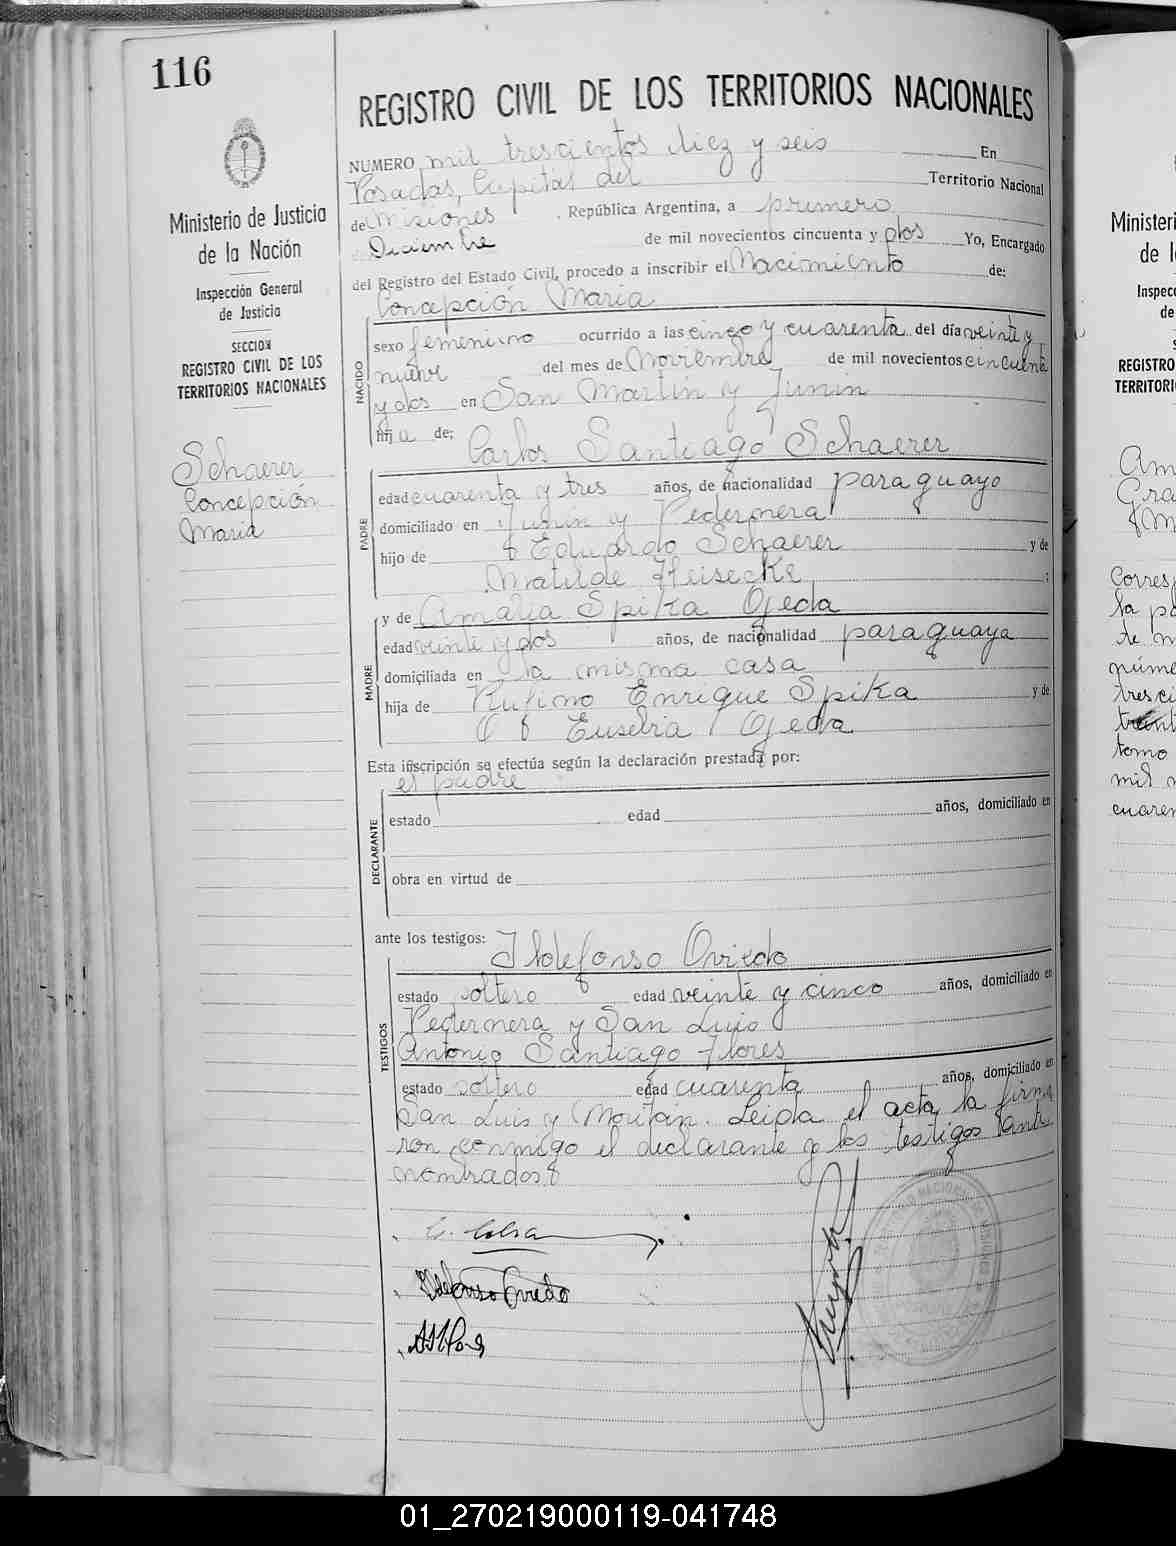 116
Ministerio de Justicia
de la Nación
Inspección General
de Justicia
SECCION
REGISTRO CIVIL DE LOS
TERRITORIOS NACIONALES
Schaerer
Concepción
María
REGISTRO CIVIL DE LOS TERRITORIOS NACIONALES
NUMERO mil trescientos diez y seis En
Posadas, Capital del Territorio Nacional
de Misiones República Argentina, a primero
Diciembre de mil novecientos cincuenta y dos Yo, Encargado
del Registro del Estado Civil, procedo a inscribir el Nacimiento de:
Concepción María
NACIDO
sexo femenino ocurrido a las cinco y cuarenta del día veinte y
nueve del mes de Noviembre de mil novecientos cincuenta
y dos en San Martín y Junín
hija de: Carlos Santiago Schaerer
PADRE
edad cuarenta y tres años, de nacionalidad paraguayo
domiciliado en Junín y Pedernera
hijo de Eduardo Schaerer y de
Matilde Heisecke
y de Amalia Spika Ojeda
MADRE
edad veinte y dos años, de nacionalidad paraguaya
domiciliada en la misma casa
hija de Rufino Enrique Spika y de
Eusebia Ojeda
Esta inscripción se efectúa según la declaración prestada por:
el padre
DECLARANTE
estado edad años, domiciliado en
obra en virtud de
ante los testigos: Ildefonso Oviedo
TESTIGOS
estado soltero edad veinte y cinco años, domiciliado en
Pedernera y San Luis
Antonio Santiago Flores
estado soltero edad cuarenta años, domiciliado en
San Luis y Moritán. Leida el acta, la firma
ron conmigo el declarante y los testigos ante
nombrados
Ildefonso Oviedo
Minister
de l
Inspecc
de
REGISTRO
TERRITORI
Am
Gra
Corres
la pa
de n
núme
tresci
treint
tomo
mil n
cuaren
01_270219000119-041748